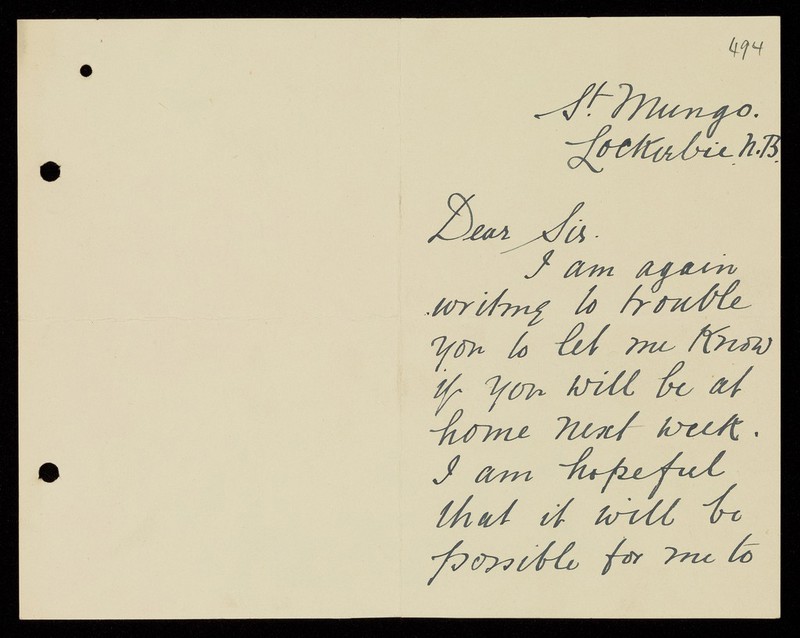 494
St. Mungo.
Lockerbie. N.B.
Dear Sir.
I am again
writing to trouble
you to let me Know
if you will be at
home next week.
I am hopeful
that it will be
possible for me to